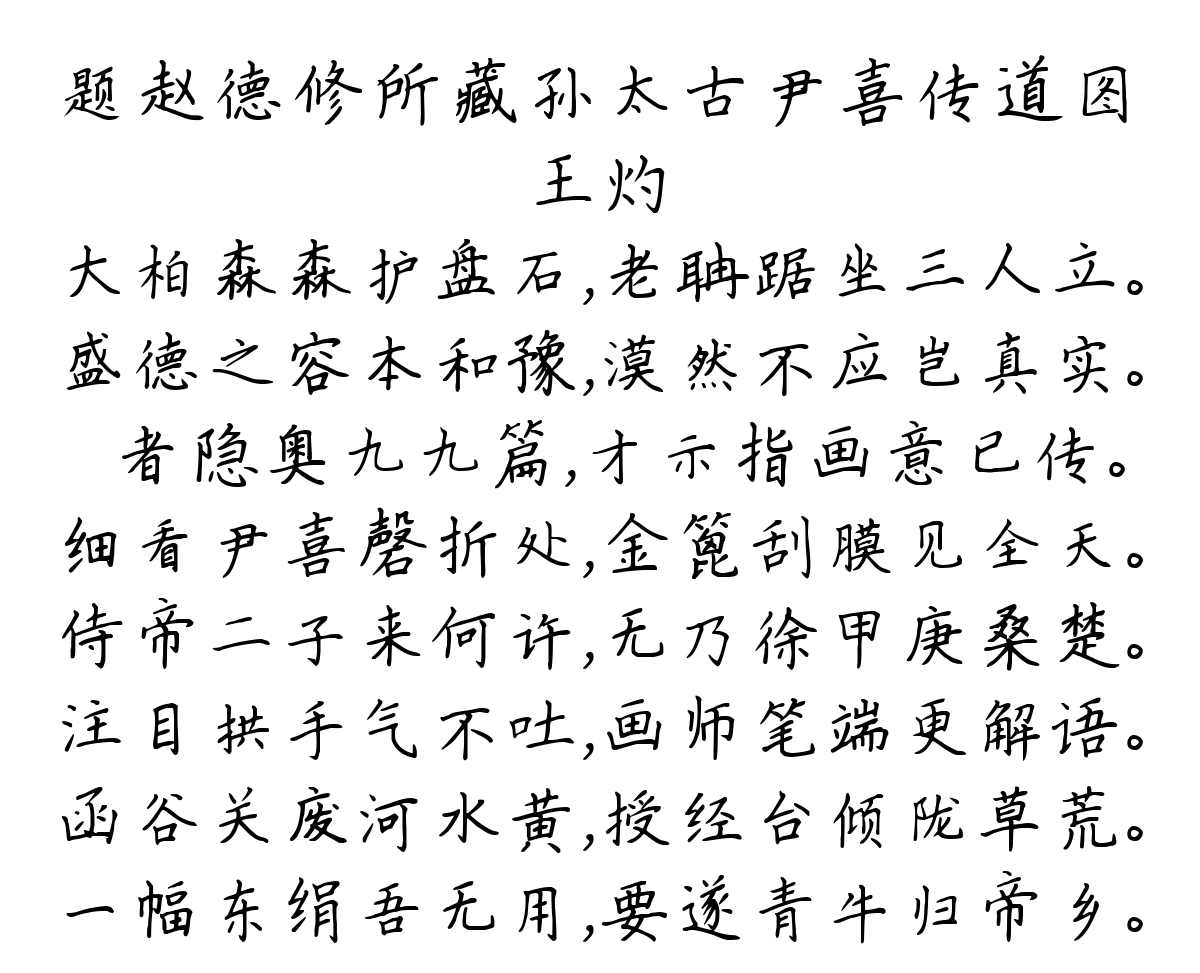 题赵德修所藏孙太古尹喜传道图
王灼
大柏森森护盘石,老聃踞坐三人立。
盛德之容本和豫,漠然不应岂真实。
者隐奥九九篇,才示指画意已传。
细看尹喜磬折处,金篦刮膜见全天。
侍帝二子来何许,无乃徐甲庚桑楚。
注目拱手气不吐,画师笔端更解语。
函谷关废河水黄,授经台倾陇草荒。
一幅东绢吾无用,要遂青牛归帝乡。